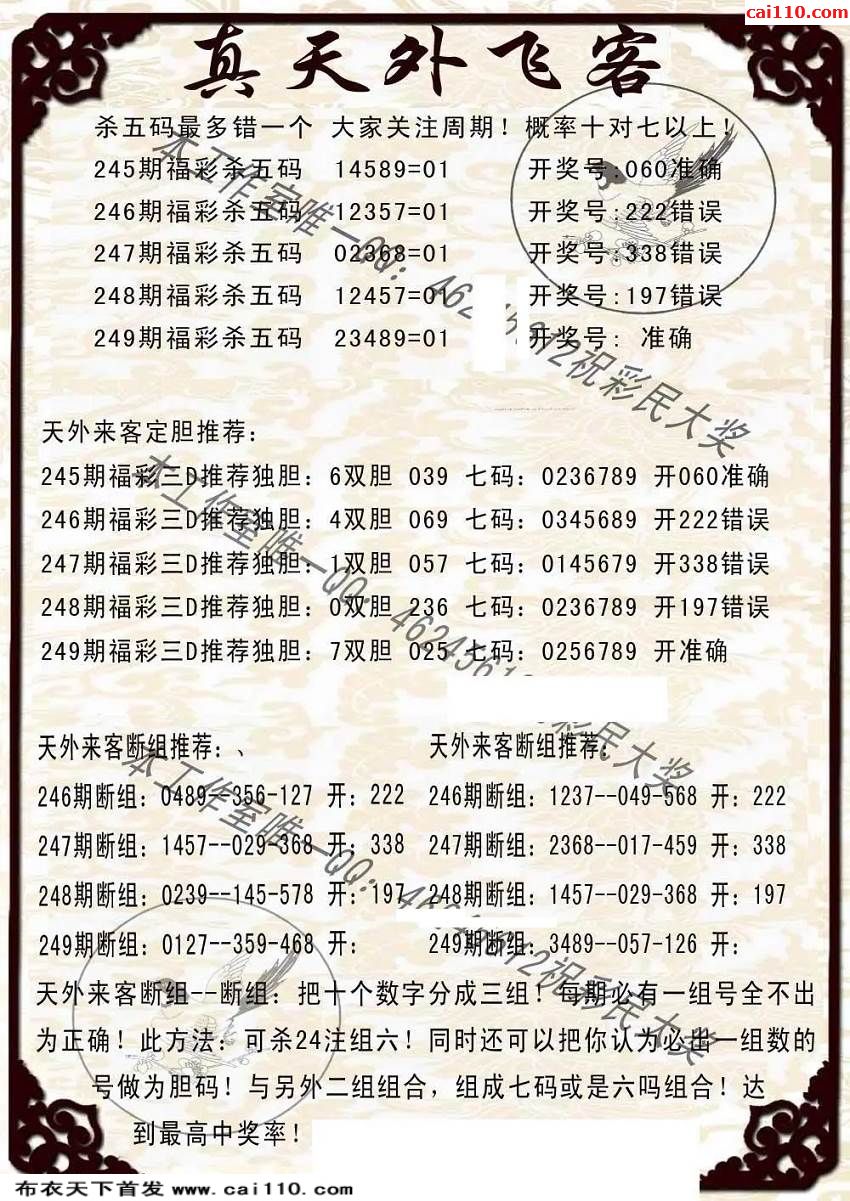 cai110.com
真天外飞客
杀五码最多错一个 大家关注周期！概率十对七以上！
245期福彩杀五码 14589=01 开奖号:060准确
246期福彩杀五码 12357=01 开奖号:222错误
247期福彩杀五码 02368=01 开奖号:338错误
248期福彩杀五码 12457=01 开奖号:197错误
249期福彩杀五码 23489=01 开奖号: 准确
天外来客定胆推荐：
245期福彩三D推荐独胆：6双胆 039 七码：0236789 开060准确
246期福彩三D推荐独胆：4双胆 069 七码：0345689 开222错误
247期福彩三D推荐独胆：1双胆 057 七码：0145679 开338错误
248期福彩三D推荐独胆：0双胆 236 七码：0236789 开197错误
249期福彩三D推荐独胆：7双胆 025 七码：0256789 开准确
天外来客断组推荐：、 天外来客断组推荐：
246期断组：0489--356-127 开：222 246期断组：1237--049-568 开：222
247期断组：1457--029-368 开：338 247期断组：2368--017-459 开：338
248期断组：0239--145-578 开：197 248期断组：1457--029-368 开：197
249期断组：0127--359-468 开： 249期断组：3489--057-126 开：
天外来客断组--断组：把十个数字分成三组！每期必有一组号全不出
为正确！此方法：可杀24注组六！同时还可以把你认为必出一组数的
号做为胆码！与另外二组组合，组成七码或是六吗组合！达
到最高中奖率！
本工作室唯一QQ：
祝彩民大奖
本工作室唯一QQ：
彩民大奖
本工作室唯一QQ：
祝彩民大奖
布衣天下首发 www.cai110.com